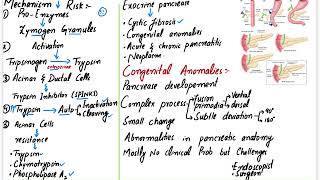 Mechanism ↓ Risk:-
① Pro-Enzymes
Zymogen Granules
② Activation
Trypsinogen → Trypsin
③ Acinar & Ductal Cells
Trypsin Inhibitor (SPINK1)
④ Trypsin → Auto Inactivation
cleaving
⑤ Acinar Cells
resistance
• Trypsin
• Chymotrypsin
• Phospholipase A₂
Exocrine pancreas
• Cystic fibrosis
• Congenital anomalies
• Acute & Chronic pancreatitis
• Neoplasms
Congenital Anomalies:-
Pancreas developement
Complex process → Fusion → Ventral
primordia dorsal
Small change → Subtle deviation
Abnormalities in pancreatic anatomy
Mostly No Clinical Prob but Challenge
Endoscopist
• Surgeon